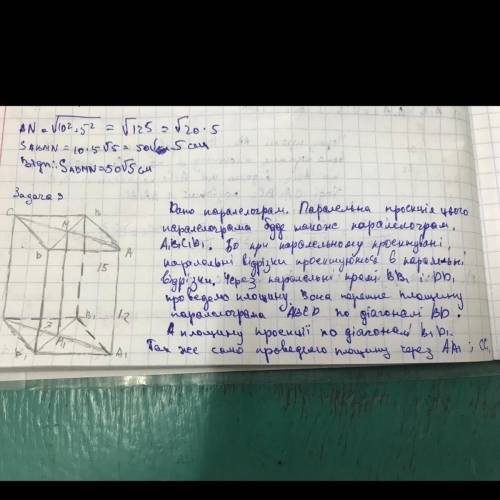 AN = √10²+5² = √125 = √20·5
SAKMN = 10·5√5 = 50√5 см
Відп.: SADMN = 50√5 см
Задача 9
Дано паралелограм. Паралельна проекція цього
паралелограма буде також паралелограм.
A₁B₁C₁D₁. Бо при паралельному проєктуванні,
паралельні відрізки проєктуються в паралельні
відрізки. Через паралельні прямі BB₁ і DD₁
проведемо площину. Вона перетне площину
паралелограма ABCD по діагоналі BD.
А площину проекції по діагоналі B₁D₁.
Так же само проведемо площину через AA₁ ; CC₁
C
M
A
D
15
B₁
12
A₁